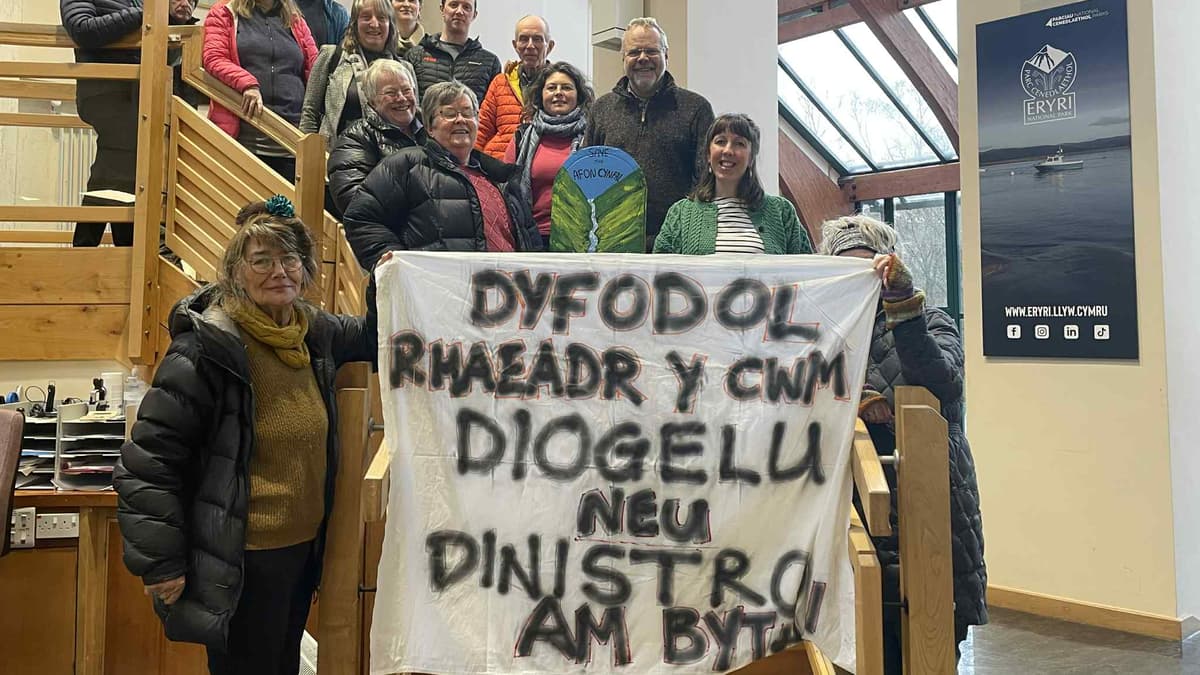 PARCIAU CENEDLAETHOL PARKS
PARC CENEDLAETHOL
ERYRI
NATIONAL PARK
WWW.ERYRI.LLYW.CYMRU
SAVE
THE
AFON CYNFAL
DYFODOL
RHAEADR Y CWM
DIOGELU
NEU
DINISTRO
AM BYTH!